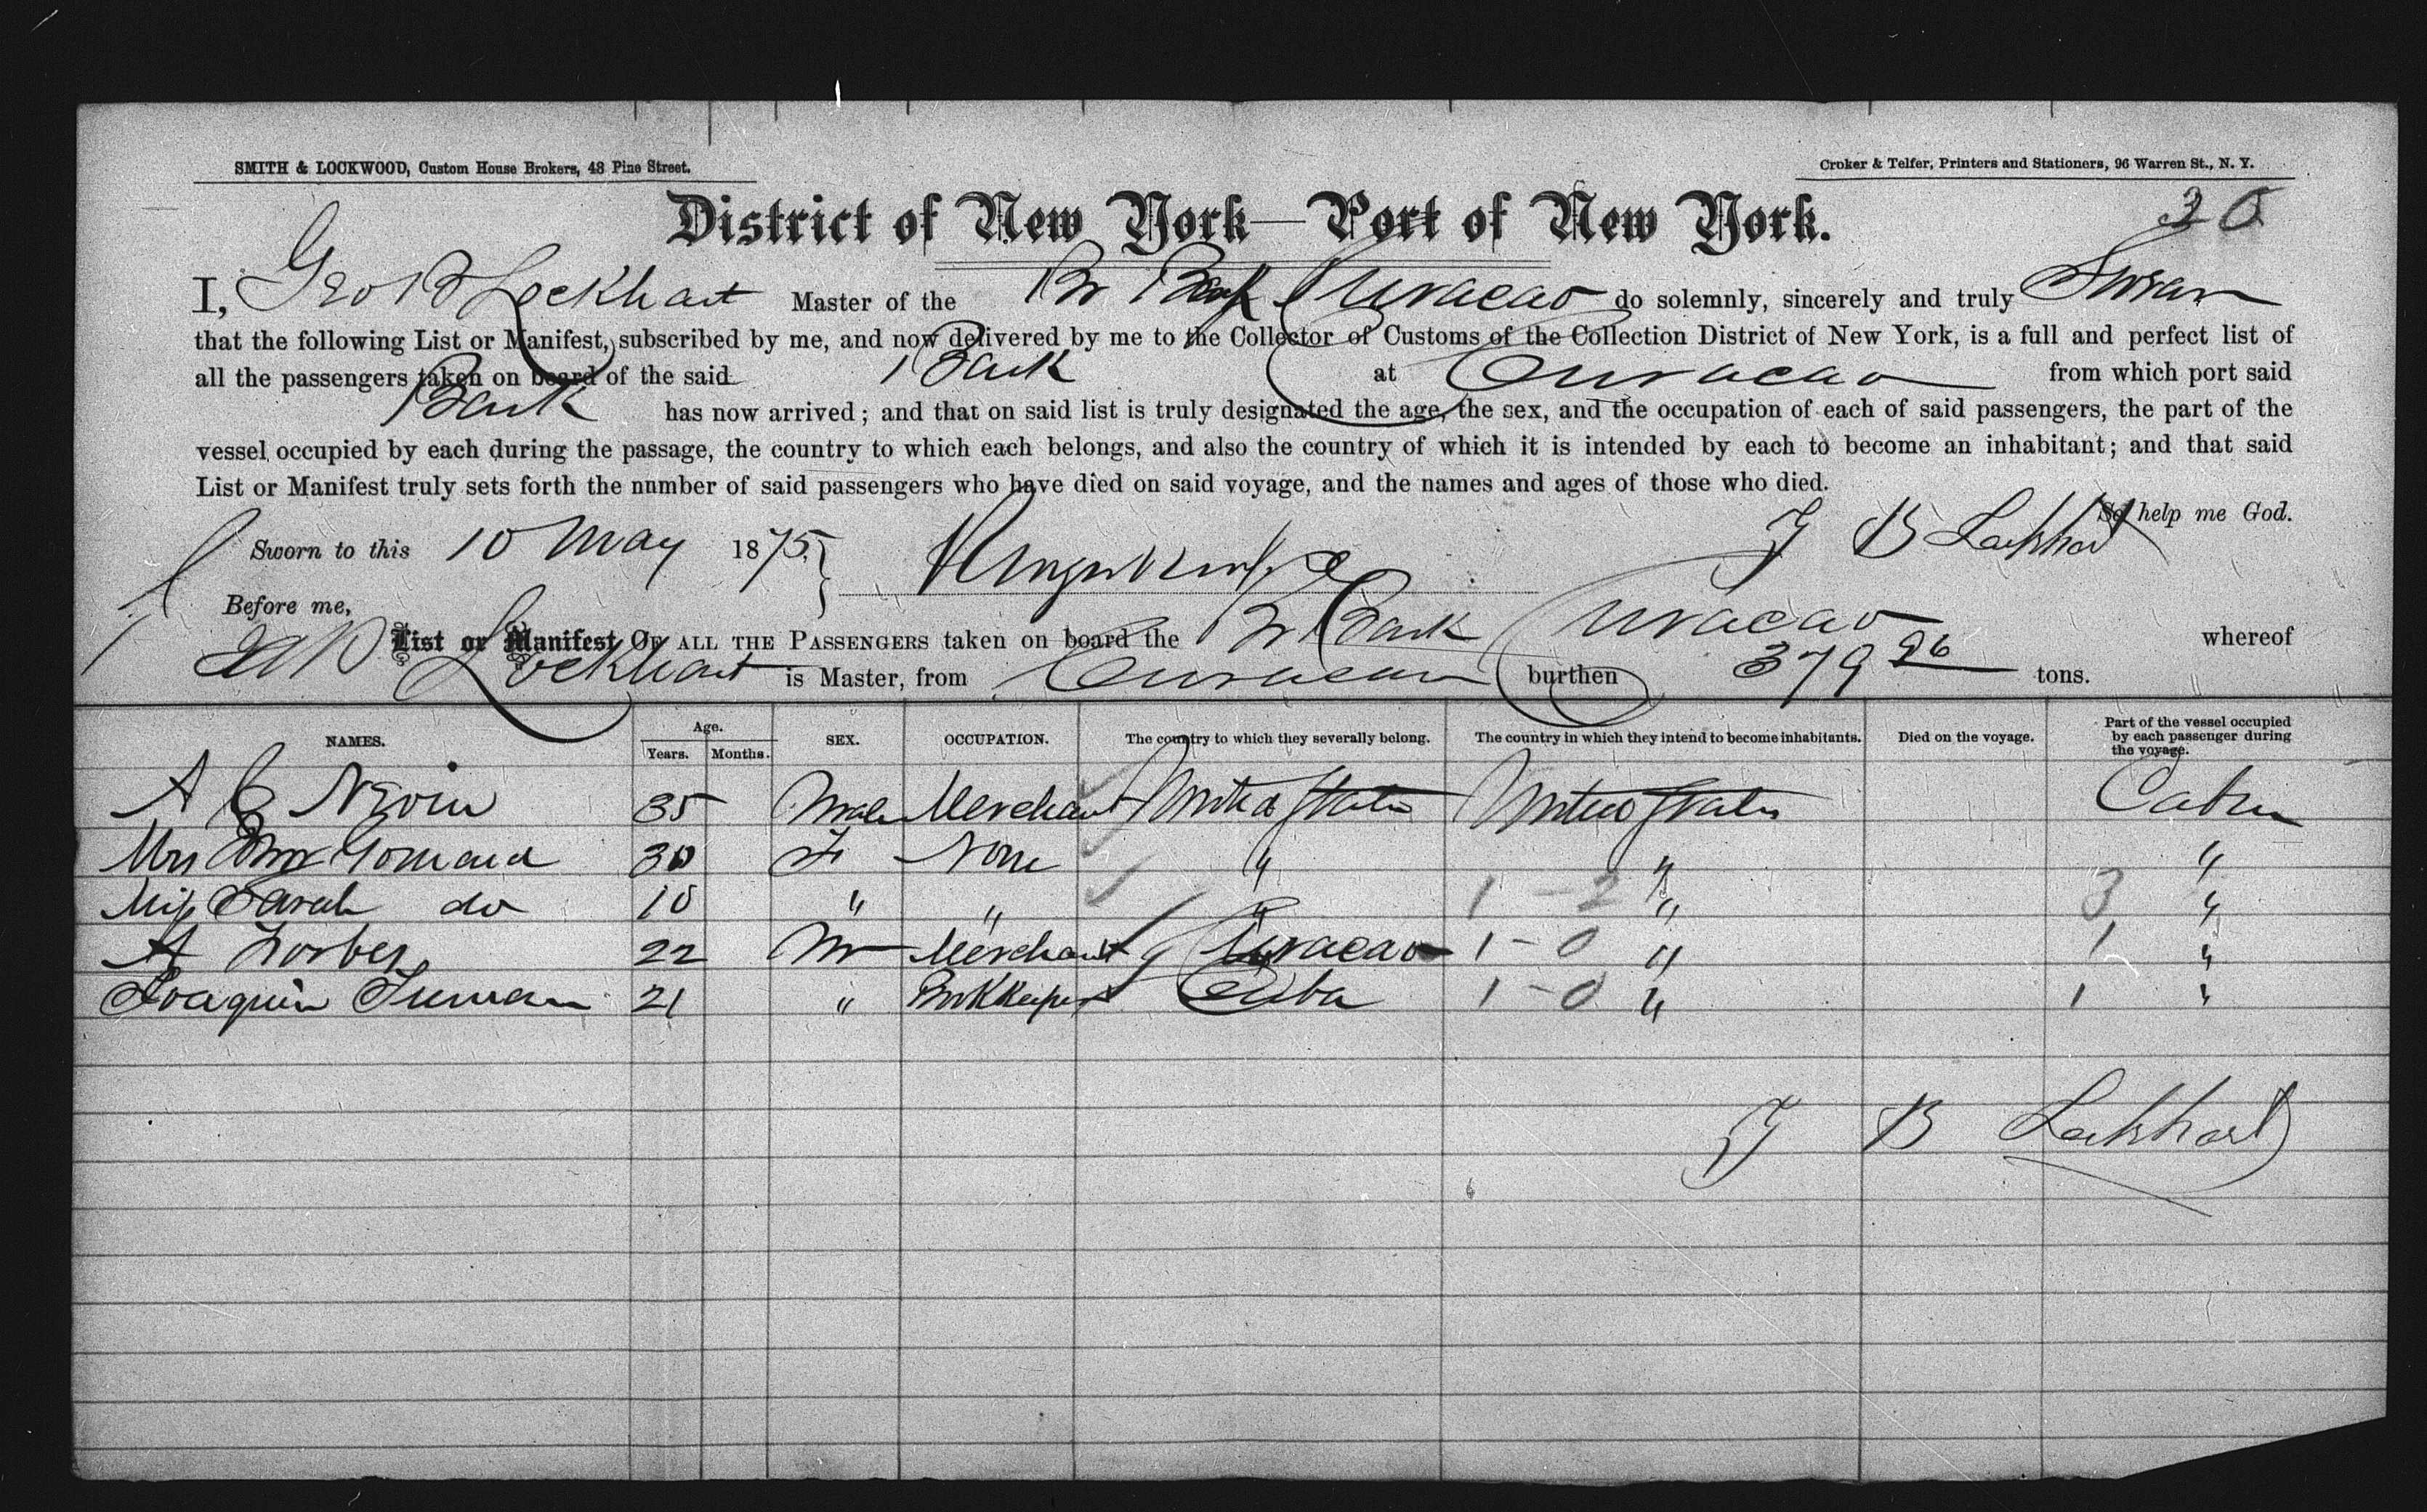 SMITH & LOCKWOOD, Custom House Brokers, 48 Pine Street.
Croker & Telfer, Printers and Stationers, 96 Warren St., N. Y.
District of New York—Port of New York.
I, Geo B Lockhart Master of the Br Bark Curacao do solemnly, sincerely and truly Swear
that the following List or Manifest, subscribed by me, and now delivered by me to the Collector of Customs of the Collection District of New York, is a full and perfect list of
all the passengers taken on board of the said Bark at Curacao from which port said
Bark has now arrived; and that on said list is truly designated the age, the sex, and the occupation of each of said passengers, the part of the
vessel occupied by each during the passage, the country to which each belongs, and also the country of which it is intended by each to become an inhabitant; and that said
List or Manifest truly sets forth the number of said passengers who have died on said voyage, and the names and ages of those who died.
So help me God.
Sworn to this 10 May 1875 B Lockhart
Before me,
List or Manifest OF ALL THE PASSENGERS taken on board the Br Bark Curacao whereof
Lockhart is Master, from Curacao burthen 379 96 tons.
NAMES. Age. Years. Months. SEX. OCCUPATION. The country to which they severally belong. The country in which they intend to become inhabitants. Died on the voyage. Part of the vessel occupied by each passenger during the voyage.
A 35 Male Merchant United States United States Cabin
Mrs 30 F None " " "
Miss Sarah do 10 " " " 1 - 2 " 3 "
A 22 M Merchant Curacao 1 - 0 " 1 "
Joaquin 21 " Bookkeeper Cuba 1 - 0 " 1 "
B Lockhart